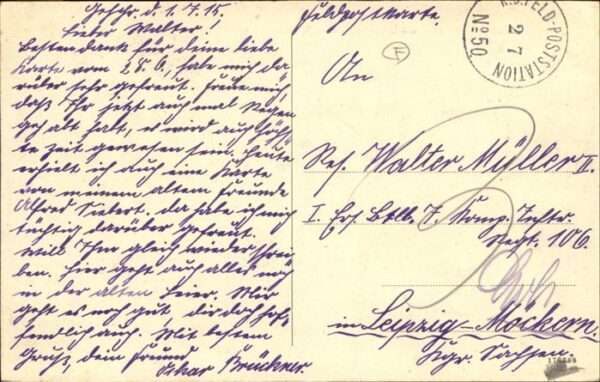 Geschr. d. 1.7.15.
Lieber Walter!
Besten dank für deine liebe
Karte vom 28.6., habe mich da-
rüber sehr gefreut. Freue mich,
daß Ihr jetzt auch mal Regen
gehabt habt, es wird auch höch-
ste Zeit gewesen sein. Heute
erhielt ich auch eine Karte
von meinem altem Freunde
Alfred Siebert. da habe ich mich
tüchtig darüber gefreut.
Will Ihm gleich wieder schrei-
ben. Hier geht auch alles noch
in der alten Leier. Mir
geht es noch gut, dir doch hof-
fendlich auch. Mit bestem
Gruß, dein Freund
Oskar Brückner.
Feldpostkarte.
K.D. FELD-POSTSTATION
2 7
No 50.
F
An
Res. Walter Müller II.
I. Ers. Btlł. 7. Komp. Inftr.
Regt. 106.
in Leipzig-Möckern.
Kgr. Sachsen.